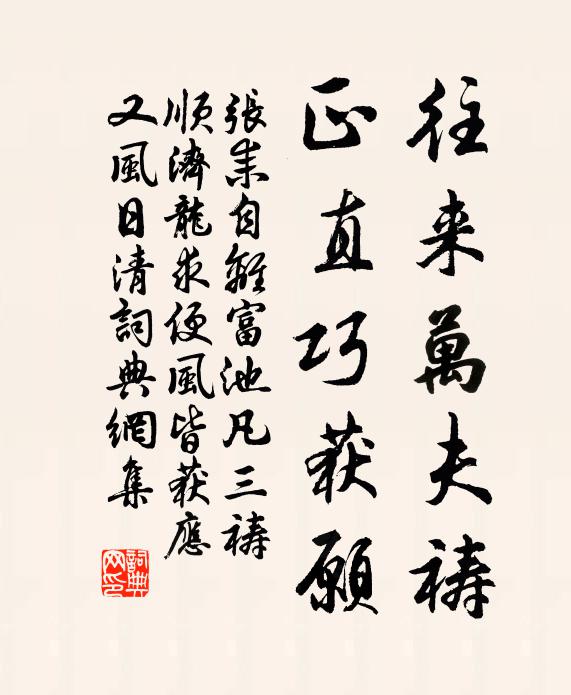 往来萬夫祷
正直巧获願
張耒自離富池凡三祷
順濟龍求便風皆获應
又風日清詞典網集
詞典網印